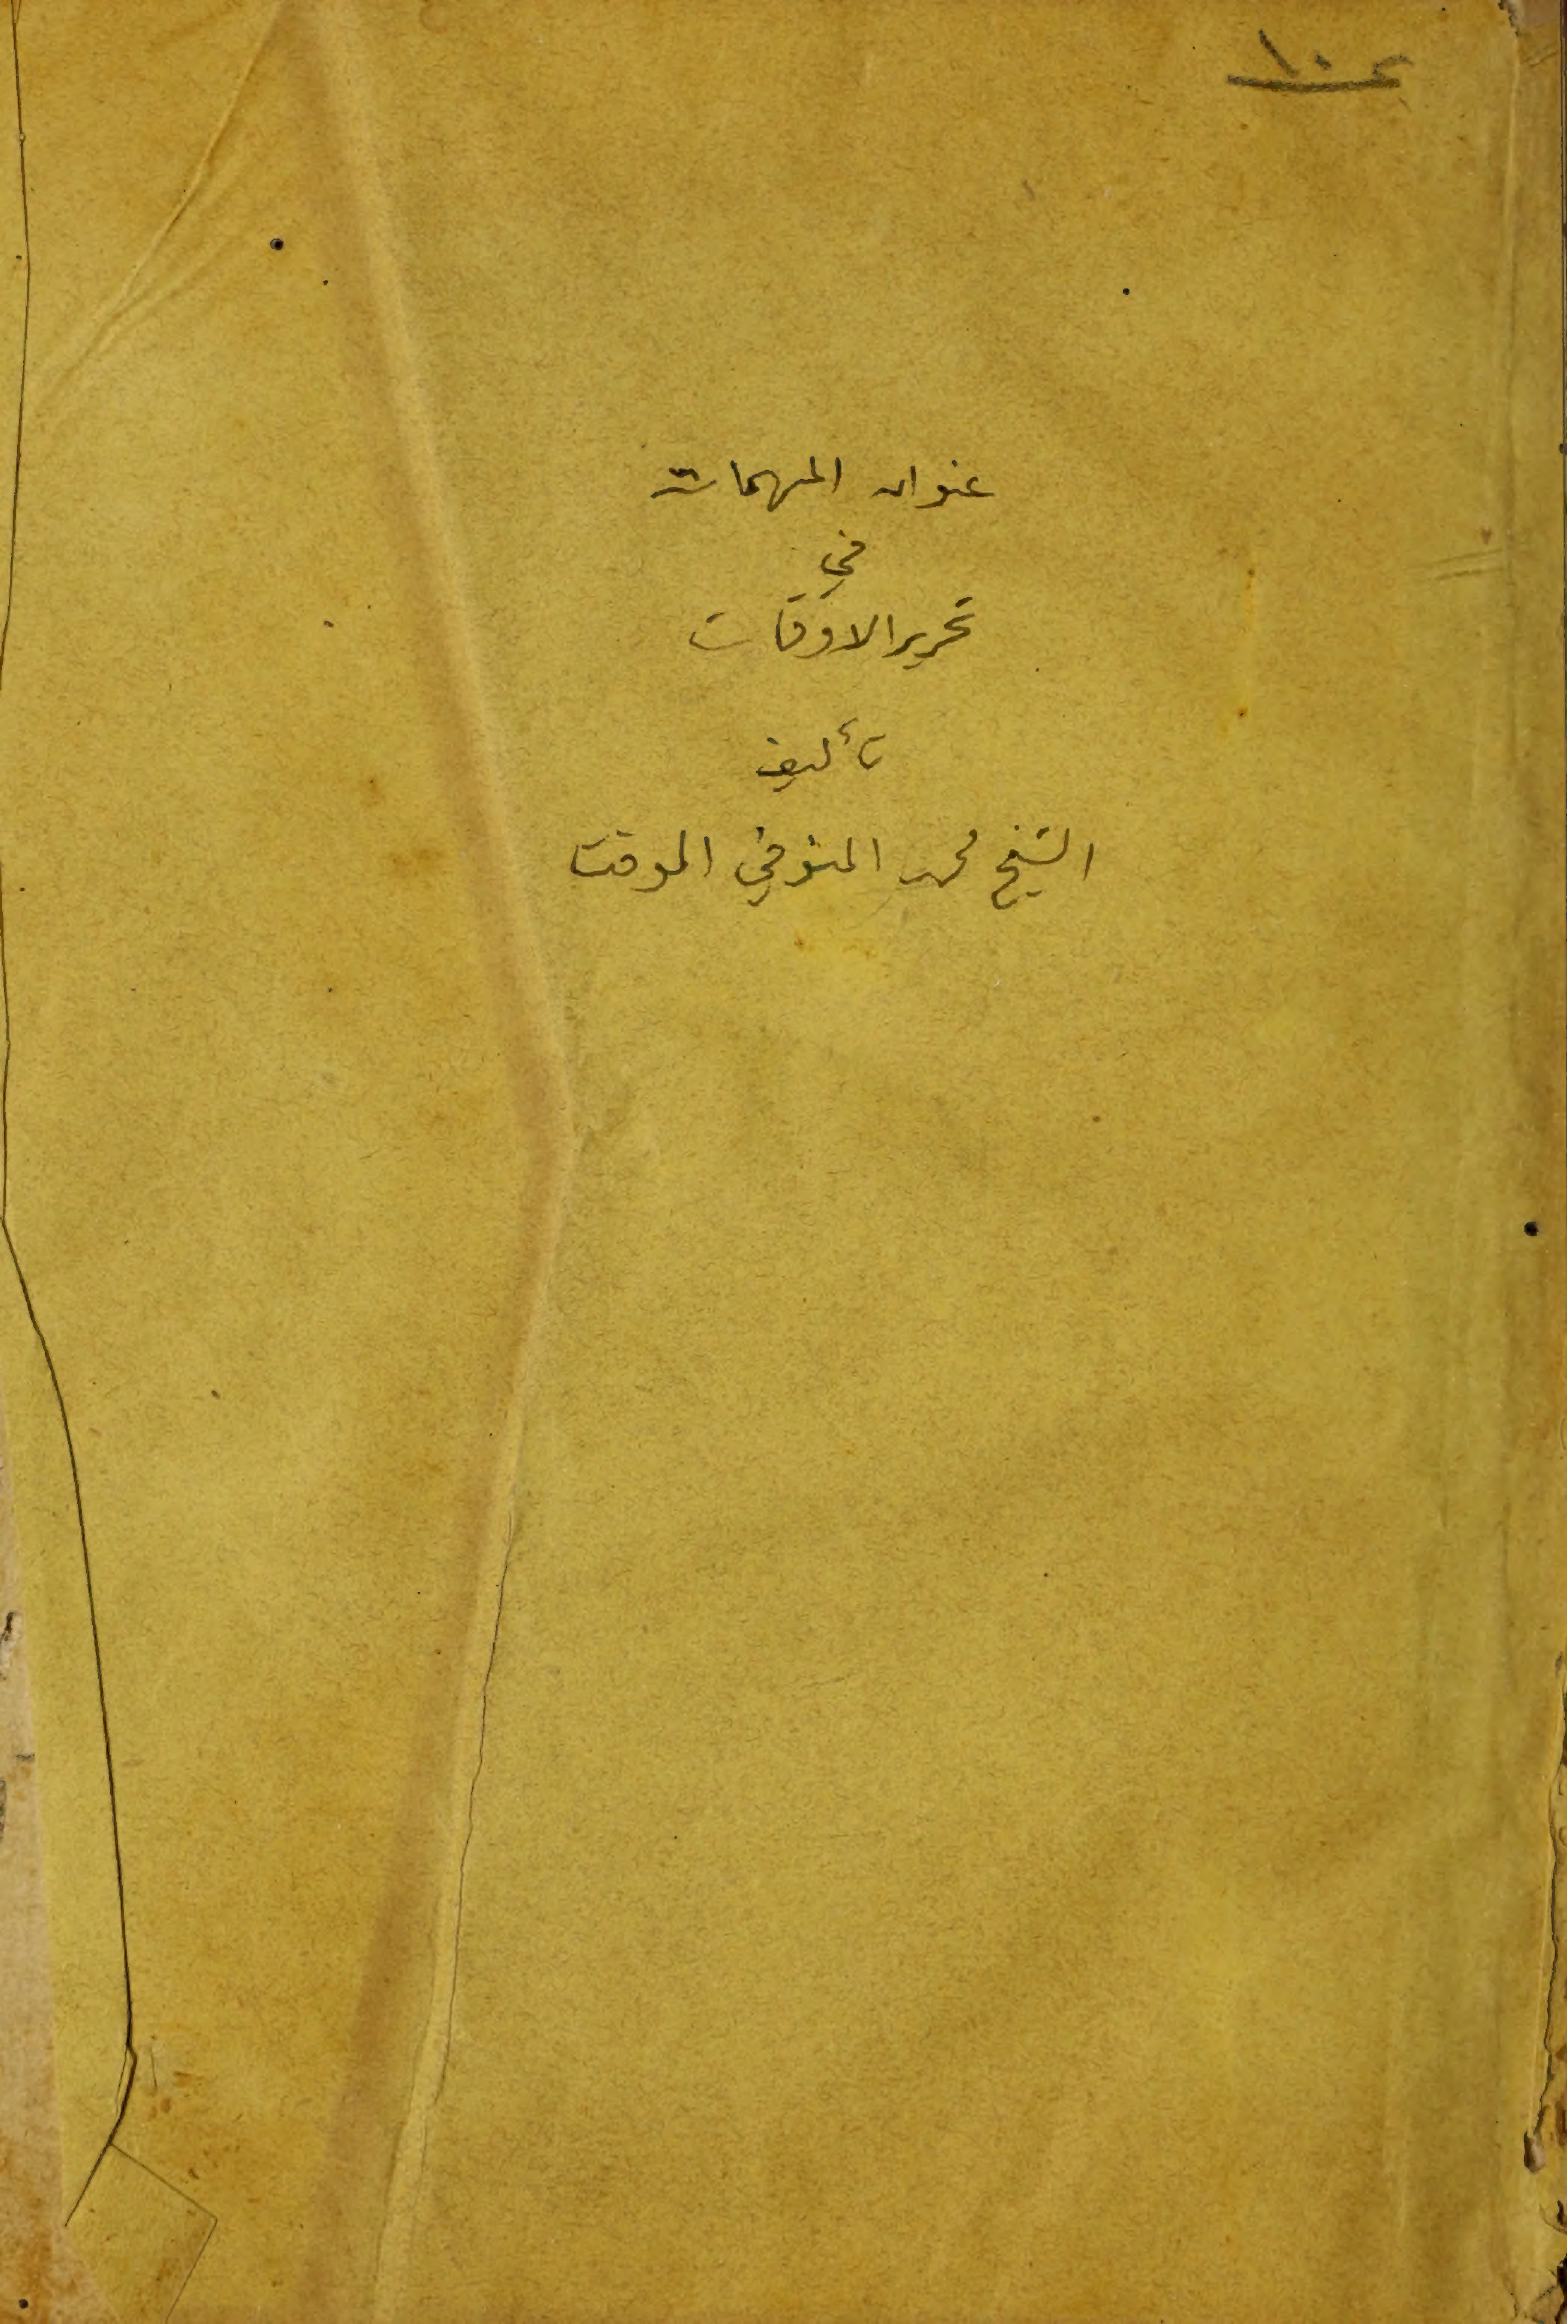 عنوان المهمات
في
تحرير الاوقات
تأليف
الشيخ محمد المنوفي الموقت